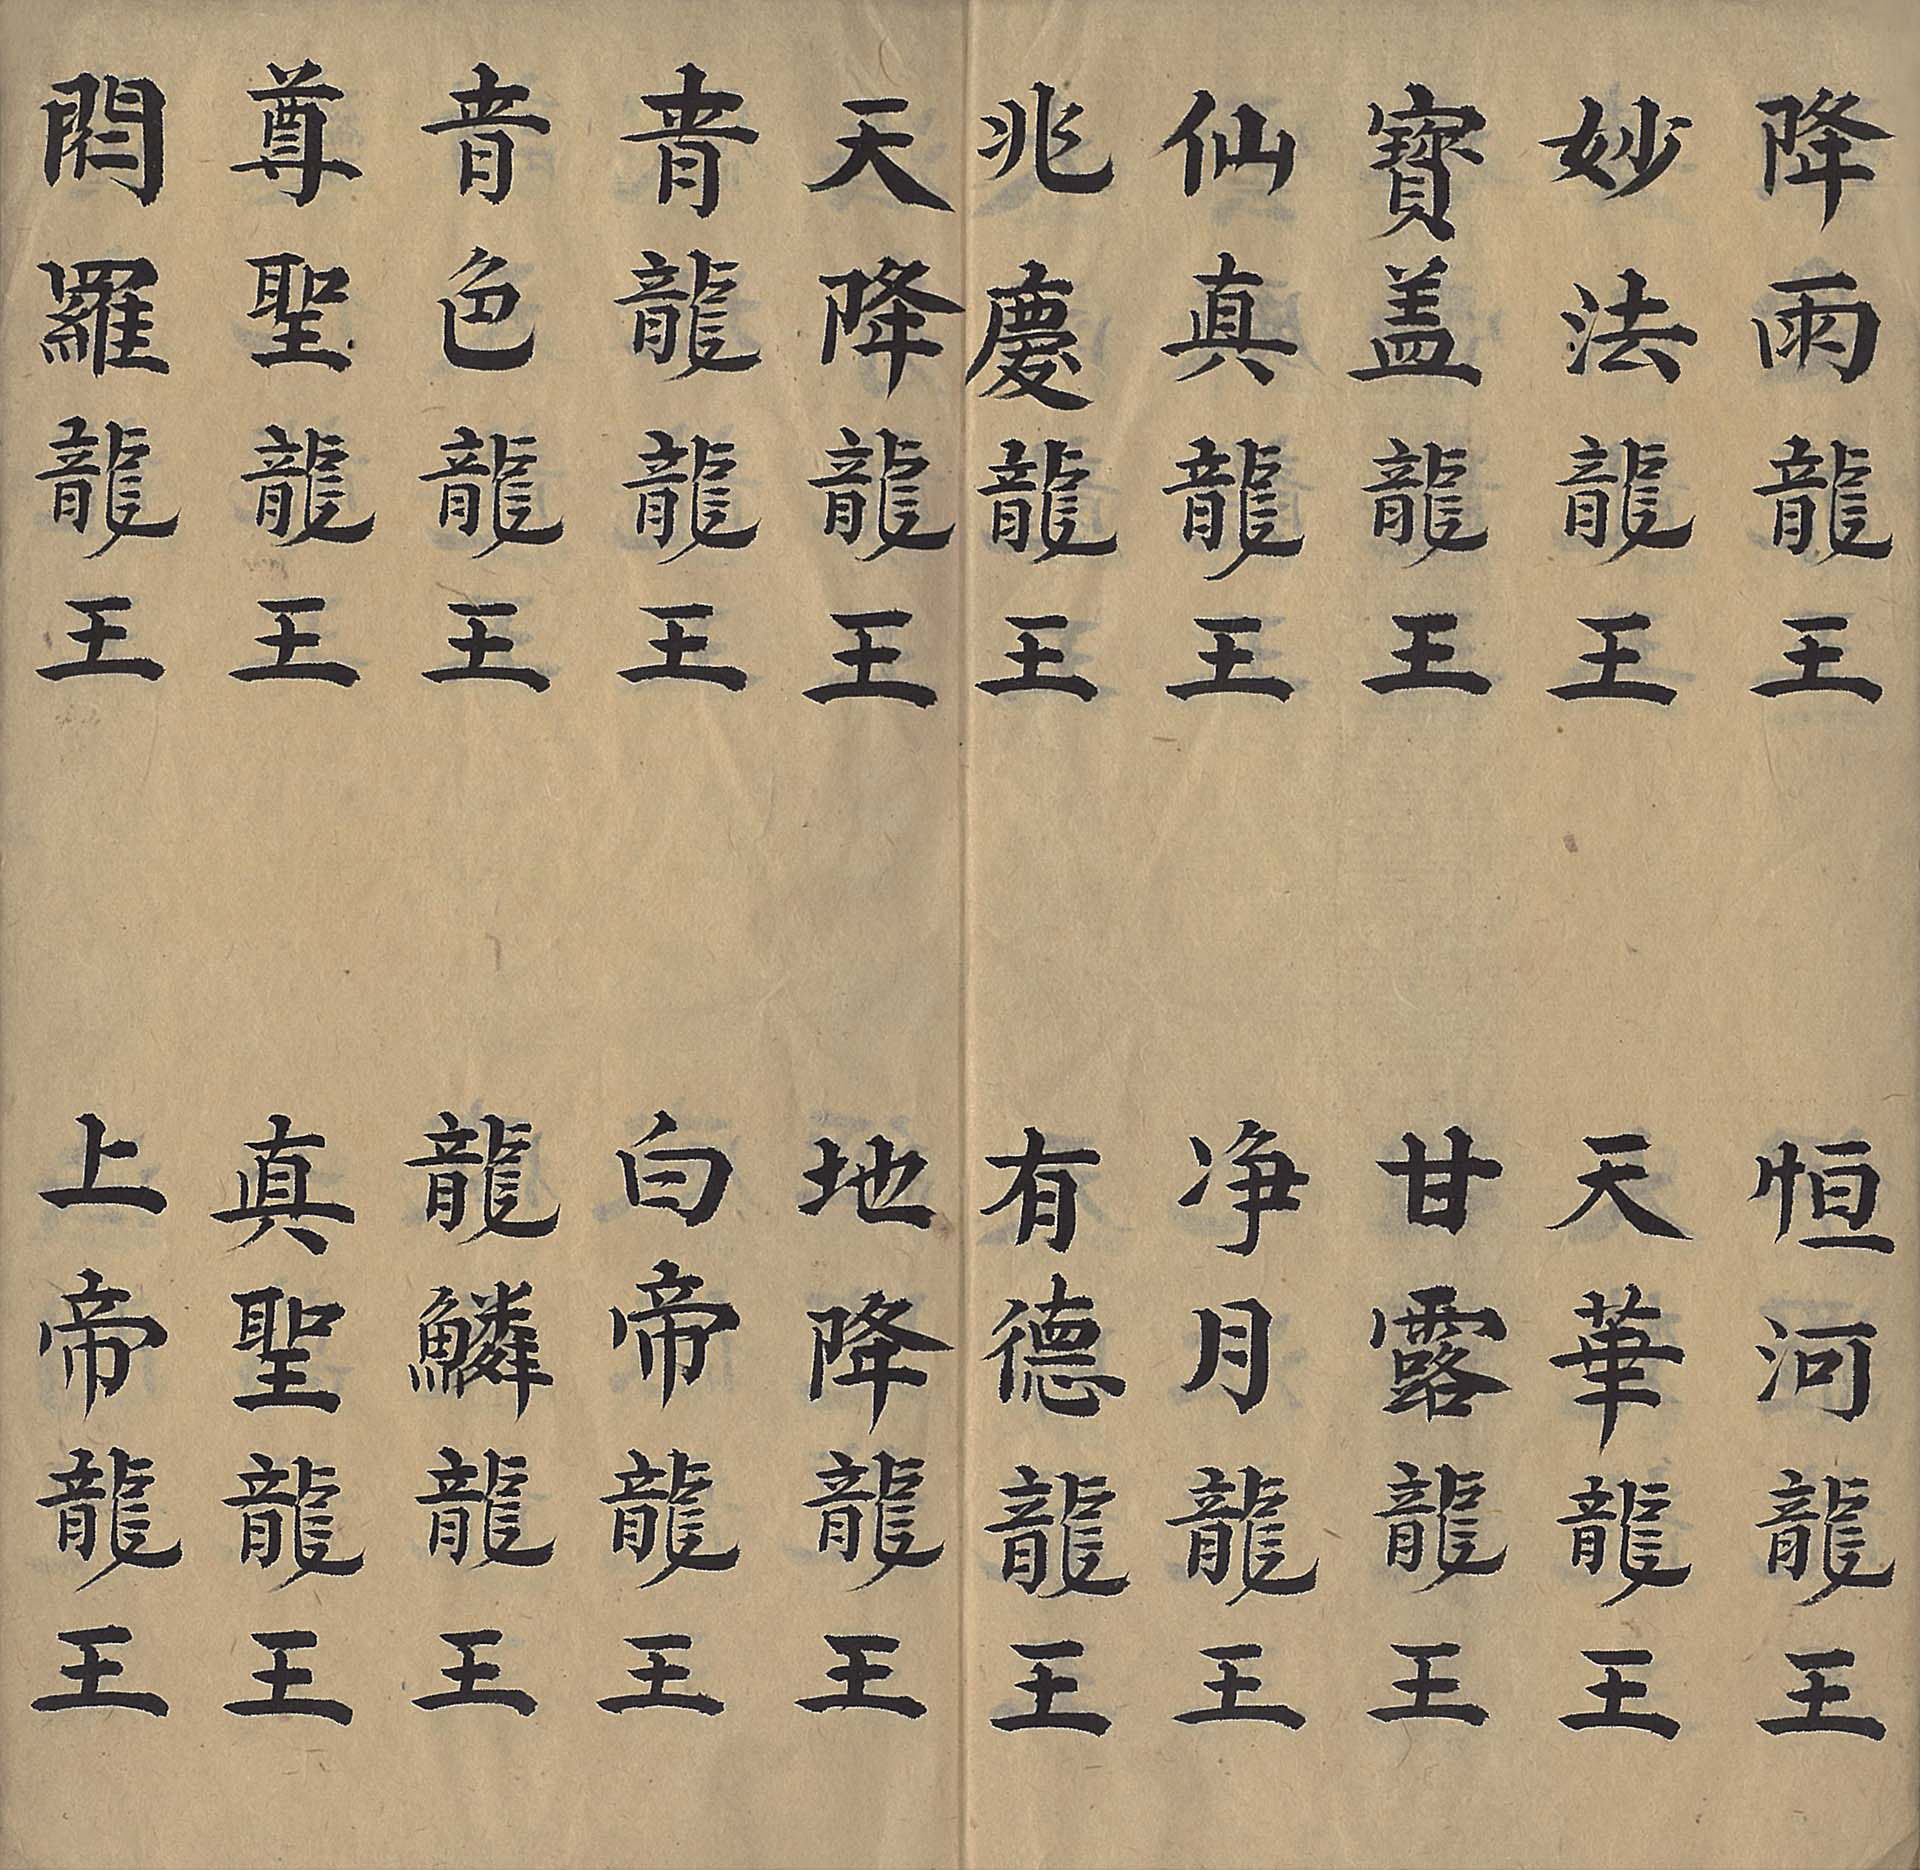 降雨龍王
恒河龍王
妙法龍王
天華龍王
寳盖龍王
甘露龍王
仙真龍王
净月龍王
兆慶龍王
有德龍王
天降龍王
地降龍王
龍龍王
白帝龍王
音色龍王
龍鱗龍王
尊聖龍王
真聖龍王
閻羅龍王
上帝龍王